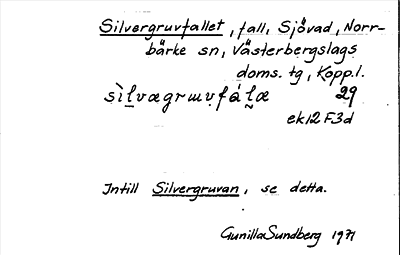 Silvergruvfallet, fall, Sjövad, Norr-
bärke sn, Västerbergslags
doms. tg, Kopp.l.
sìl̬vægrɯvfál̬æ 29
ek12F3d
Intill Silvergruvan, se detta.
Gunilla Sundberg 1971